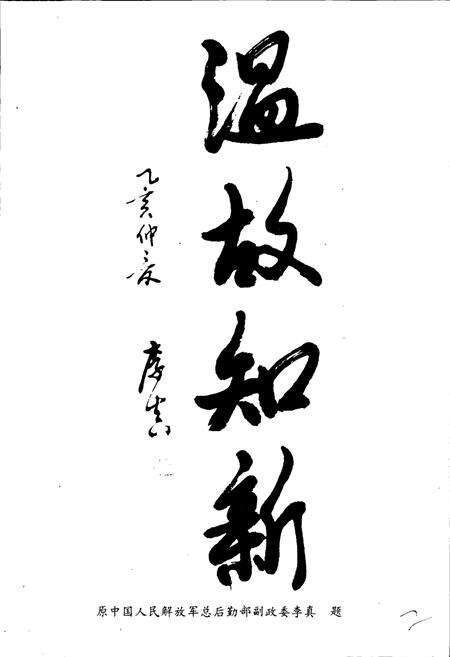 温故知新
乙亥仲夏
李真
原中国人民解放军总后勤部副政委李真 题